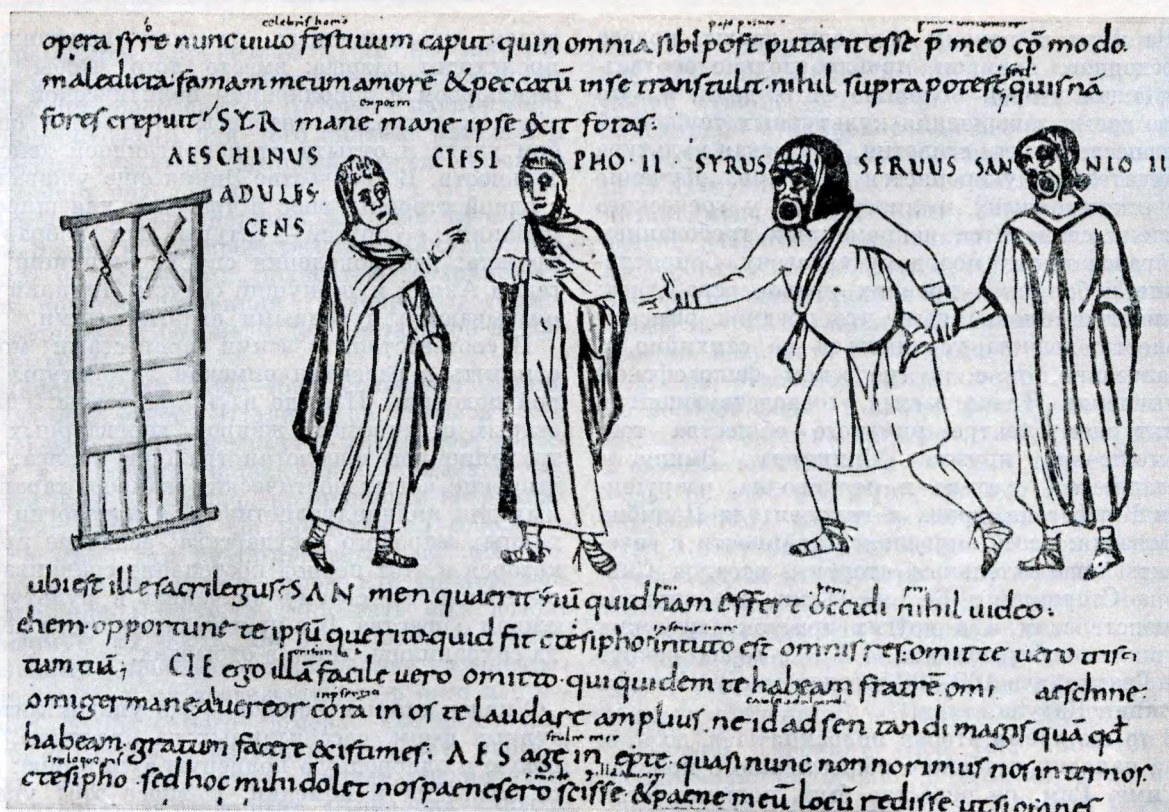 celebris homo
opera syre nunc uiuo festiuum caput quin omnia sibi post putarit esse p̄ meo cōmodo.
maledicta famam meum amorē & peccatū in se transtulit nihil supra potest quis nā
fores crepuit SYR mane mane ipse exit foras.
AESCHINUS CTESI PHO·II SYRUS SERUUS SAN NIO II
ADULES
CENS
ubi est ille sacrilegus SAN men quaerit nū quid nam effert occidi nihil uideo.
ehem opportune te ipsū querito quid fit ctesipho in tuto est omnis res omitte uero tris
tum tiā, CTE ego illā facile uero omitto qui quidem te habeam fratrē omi aeschine
omi germane a uereor corā in os te laudare amplius ne id adsen tandi magis quā qđ
habeam gratum facere existimes. AES age in epte quasi nunc non norimus nos inter nos
ctesipho sed hoc mihi dolet nos paene sero scisse & paene meū locū redisse ut si omnes